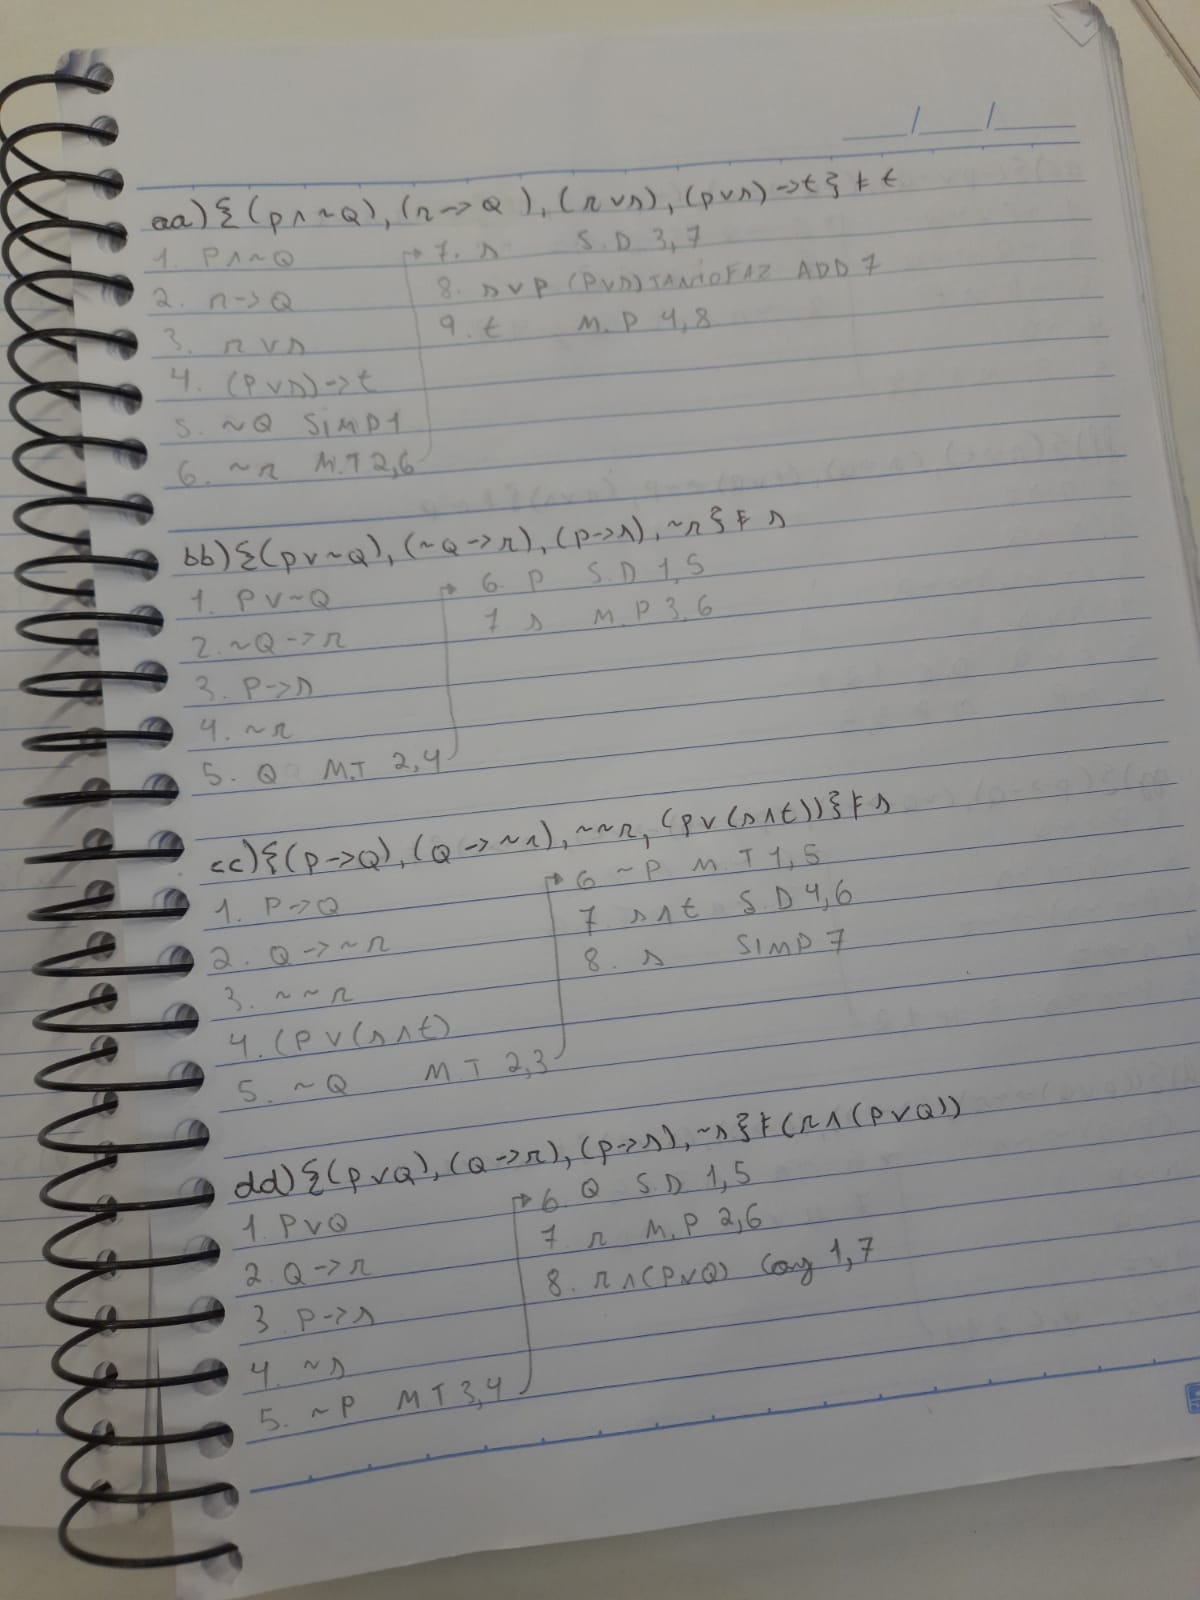 ___/___/___
aa) {(p∧~Q), (r->Q), (r∨s), (p∨s)->t} ⊧ t
1. P∧~Q
2. r->Q
3. r∨s
4. (P∨s)->t
5. ~Q SiMP1
6. ~r M.T 2,6
7. s S.D 3,7
8. s∨P (P∨s) TANTOFAZ ADD 7
9. t M.P 4,8
bb) {(p∨~Q), (~Q->r), (p->s), ~r} ⊧ s
1. P∨~Q
2. ~Q->r
3. P->s
4. ~r
5. Q M.T 2,4
6. P S.D 1,5
7 s M.P 3,6
cc) {(P->Q), (Q->~r), ~~r, (p∨(s∧t))} ⊧ s
1. P->Q
2. Q->~r
3. ~~r
4. (P∨(s∧t)
5. ~Q M T 2,3
6 ~P M T 1,5
7 s∧t S.D 4,6
8. s SIMP 7
dd) {(p∨Q), (Q->r), (p->s), ~s} ⊧ (r∧(P∨Q))
1. P∨Q
2. Q->r
3. P->s
4. ~s
5. ~P M T 3,4
6. Q S.D 1,5
7. r M.P 2,6
8. r∧(P∨Q) Conj 1,7